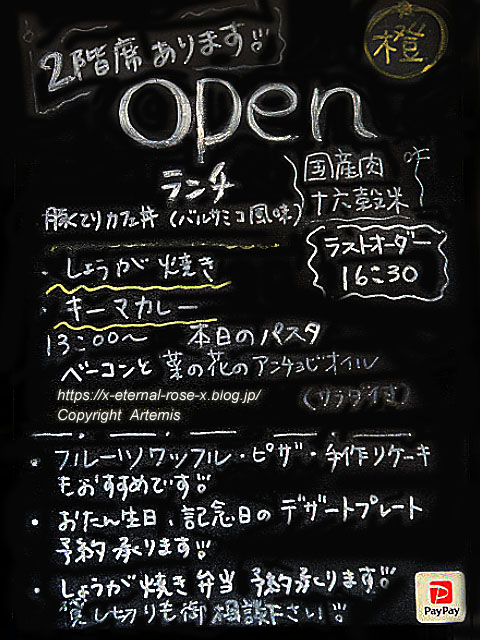 2階席あります!!
橙
open
ランチ
国産肉
十六穀米
豚てりカフェ丼 (バルサミコ風味)
・しょうが焼き
・キーマカレー
ラストオーダー
16:30
13:00〜 本日のパスタ
ベーコンと菜の花のアンチョビオイル
(サラダ付)
https://x-eternal-rose-x.blog.jp/
Copyright Artemis
・フルーツワッフル・ピザ・手作りケーキ
もおすすめです!!
・おたん生日、記念日のデザートプレート
予約承ります!!
・しょうが焼き弁当 予約承ります!!
貸し切りも御相談下さい!!
PayPay